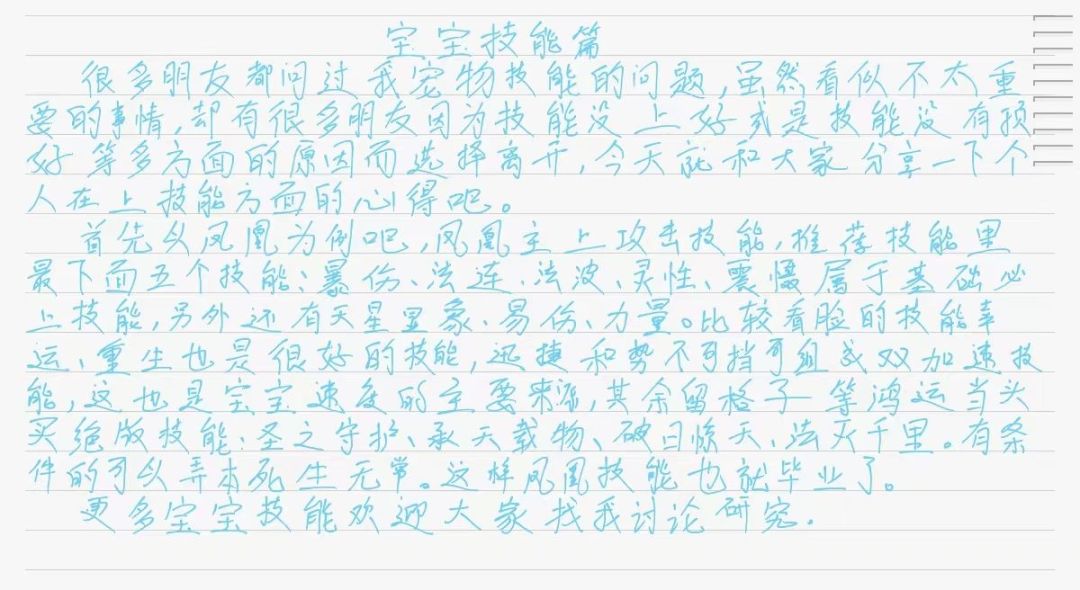 宝宝技能篇
很多朋友都问过我宠物技能的问题,虽然看似不太重
要的事情,却有很多朋友因为技能没上好或是技能没有预
好等多方面的原因而选择离开,今天就和大家分享一下个
人在上技能方面的心得吧。
首先从凤凰为例吧,凤凰主上攻击技能,推荐技能里
最下面五个技能:暴伤、法连、法波、灵性、震慑属于基础必
上技能,另外还有天星显象、易伤、力量。比较看脸的技能幸
运、重生也是很好的技能,迅捷和势不可挡可组成双加速技
能,这也是宝宝速度的主要来源,其余留格子等鸿运当头
买绝版技能:圣之守护、承天载物、破日惊天、法灭千里。有条
件的可以弄本死生无常。这样凤凰技能也就毕业了。
更多宝宝技能欢迎大家找我讨论研究.